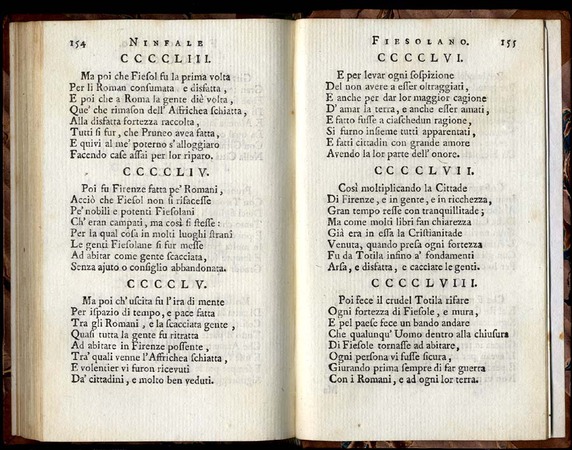 154 NINFALE
CCCCLIII.
Ma poi che Fiesol fu la prima volta
Per li Roman consumata e disfatta,
E poi che a Roma la gente diè volta,
Que' che rimason dell' Affrichea schiatta,
Alla disfatta fortezza raccolta,
Tutti si fur, che Pruneo avea fatta,
E quivi al me' poterno s'alloggiaro
Facendo case assai per lor riparo.
CCCCLIV.
Poi fu Firenze fatta pe' Romani,
Acciò che Fiesol non si rifacesse
Pe' nobili e potenti Fiesolani
Ch' eran campati, ma così si stesse:
Per la qual cosa in molti luoghi strani
Le genti Fiesolane si fur messe
Ad abitar come gente scacciata,
Senza ajuto o consiglio abbandonata.
CCCCLV.
Ma poi ch' uscita fu l'ira di mente
Per ispazio di tempo, e pace fatta
Tra gli Romani, e la scacciata gente,
Quasi tutta la gente fu ritratta
Ad abitare in Firenze possente,
Tra' quali venne l'Affrichea schiatta,
E volentier vi furon ricevuti
Da' cittadini, e molto ben veduti.
FIESOLANO. 155
CCCCLVI.
E per levar ogni sospizione
Del non avere a esser oltraggiati,
E anche per dar lor maggior cagione
D' amar la terra, e anche esser amati,
E fatto fusse a ciaschedun ragione,
Si furno insieme tutti apparentati,
E fatti cittadin con grande amore
Avendo la lor parte dell' onore.
CCCCLVII.
Così moltiplicando la Cittade
Di Firenze, e in gente, e in ricchezza,
Gran tempo resse con tranquillitade;
Ma come molti libri fan chiarezza
Già era in essa la Cristianitade
Venuta, quando presa ogni fortezza
Fu da Totila infino a' fondamenti
Arsa, e disfatta, e cacciate le genti.
CCCCLVIII.
Poi fece il crudel Totila rifare
Ogni fortezza di Fiesole, e mura,
E pel paese fece un bando andare
Che qualunqu' Uomo dentro alla chiusura
Di Fiesole tornasse ad abitare,
Ogni persona vi fusse sicura,
Giurando prima sempre di far guerra
Con i Romani, e ad ogni lor terra.